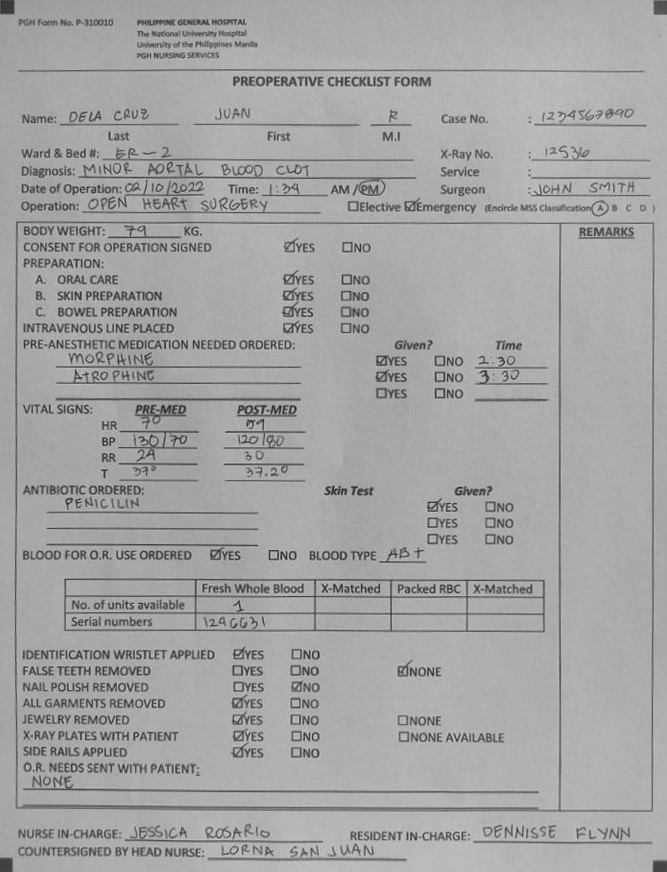 PGH Form No. P-310010
PHILIPPINE GENERAL HOSPITAL
The National University Hospital
University of the Philippines Manila
PGH NURSING SERVICES
PREOPERATIVE CHECKLIST FORM
Name: DELA CRUZ JUAN R Case No. : 1234567890
Last First M.I
Ward & Bed #: ER-2 X-Ray No. : 12536
Diagnosis: MINOR AORTAL BLOOD CLOT Service :
Date of Operation: 02/10/2022 Time: 1:34 AM / PM Surgeon : JOHN SMITH
Operation: OPEN HEART SURGERY ☐Elective ☑Emergency (Encircle MSS Classification A B C D )
BODY WEIGHT: 79 KG. REMARKS
CONSENT FOR OPERATION SIGNED ☑YES ☐NO
PREPARATION:
A. ORAL CARE ☑YES ☐NO
B. SKIN PREPARATION ☑YES ☐NO
C. BOWEL PREPARATION ☑YES ☐NO
INTRAVENOUS LINE PLACED ☑YES ☐NO
PRE-ANESTHETIC MEDICATION NEEDED ORDERED: Given? Time
MORPHINE ☑YES ☐NO 2:30
ATROPHINE ☑YES ☐NO 3:30
☐YES ☐NO
VITAL SIGNS: PRE-MED POST-MED
HR 70
BP 130/70 120/80
RR 24 30
T 37° 37.2°
ANTIBIOTIC ORDERED: Skin Test Given?
PENICILIN ☑YES ☐NO
☐YES ☐NO
☐YES ☐NO
BLOOD FOR O.R. USE ORDERED ☑YES ☐NO BLOOD TYPE AB+
Fresh Whole Blood X-Matched Packed RBC X-Matched
No. of units available 1
Serial numbers 1296631
IDENTIFICATION WRISTLET APPLIED ☑YES ☐NO
FALSE TEETH REMOVED ☐YES ☐NO ☑NONE
NAIL POLISH REMOVED ☐YES ☑NO
ALL GARMENTS REMOVED ☑YES ☐NO
JEWELRY REMOVED ☑YES ☐NO ☐NONE
X-RAY PLATES WITH PATIENT ☑YES ☐NO ☐NONE AVAILABLE
SIDE RAILS APPLIED ☑YES ☐NO
O.R. NEEDS SENT WITH PATIENT:
NONE
NURSE IN-CHARGE: JESSICA ROSARIO RESIDENT IN-CHARGE: DENNISSE FLYNN
COUNTERSIGNED BY HEAD NURSE: LORNA SAN JUAN